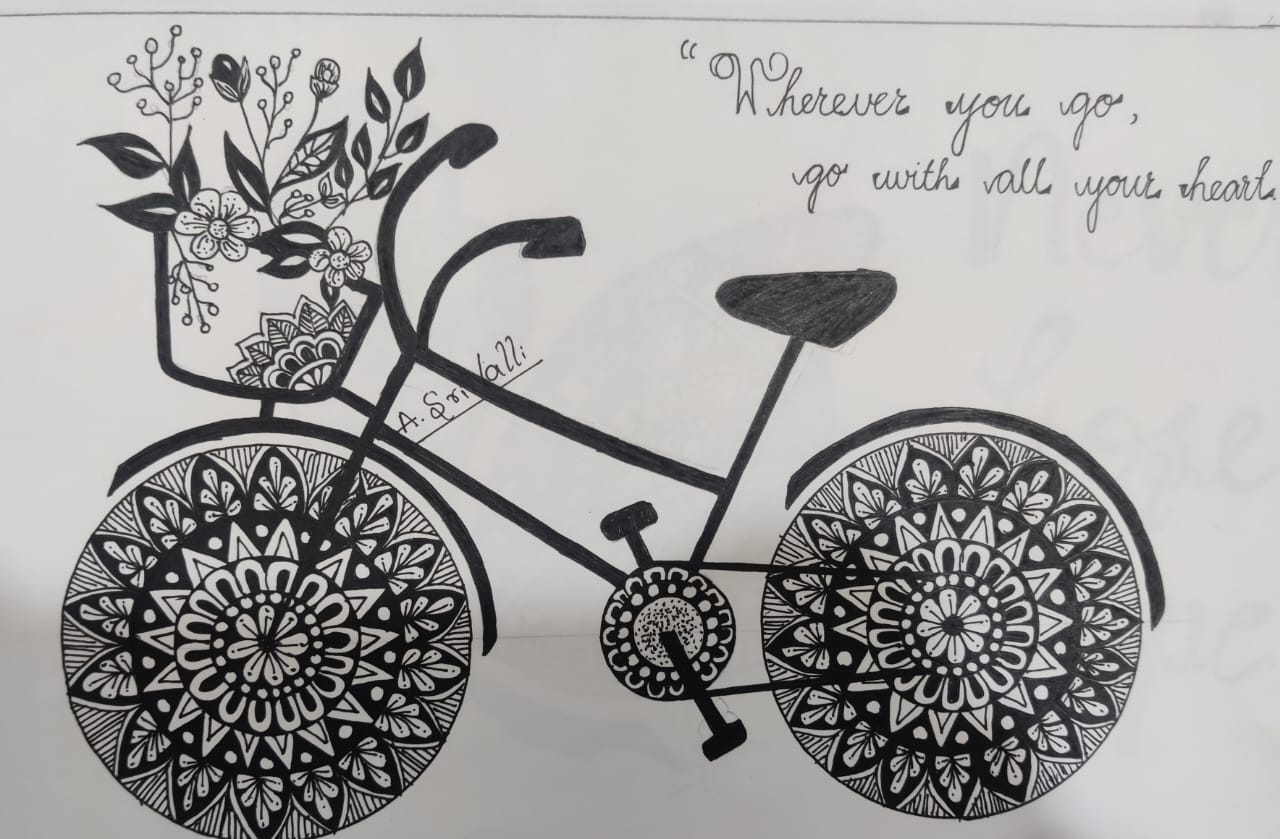 “Wherever you go,
go with all your heart.
A. Sri Valli